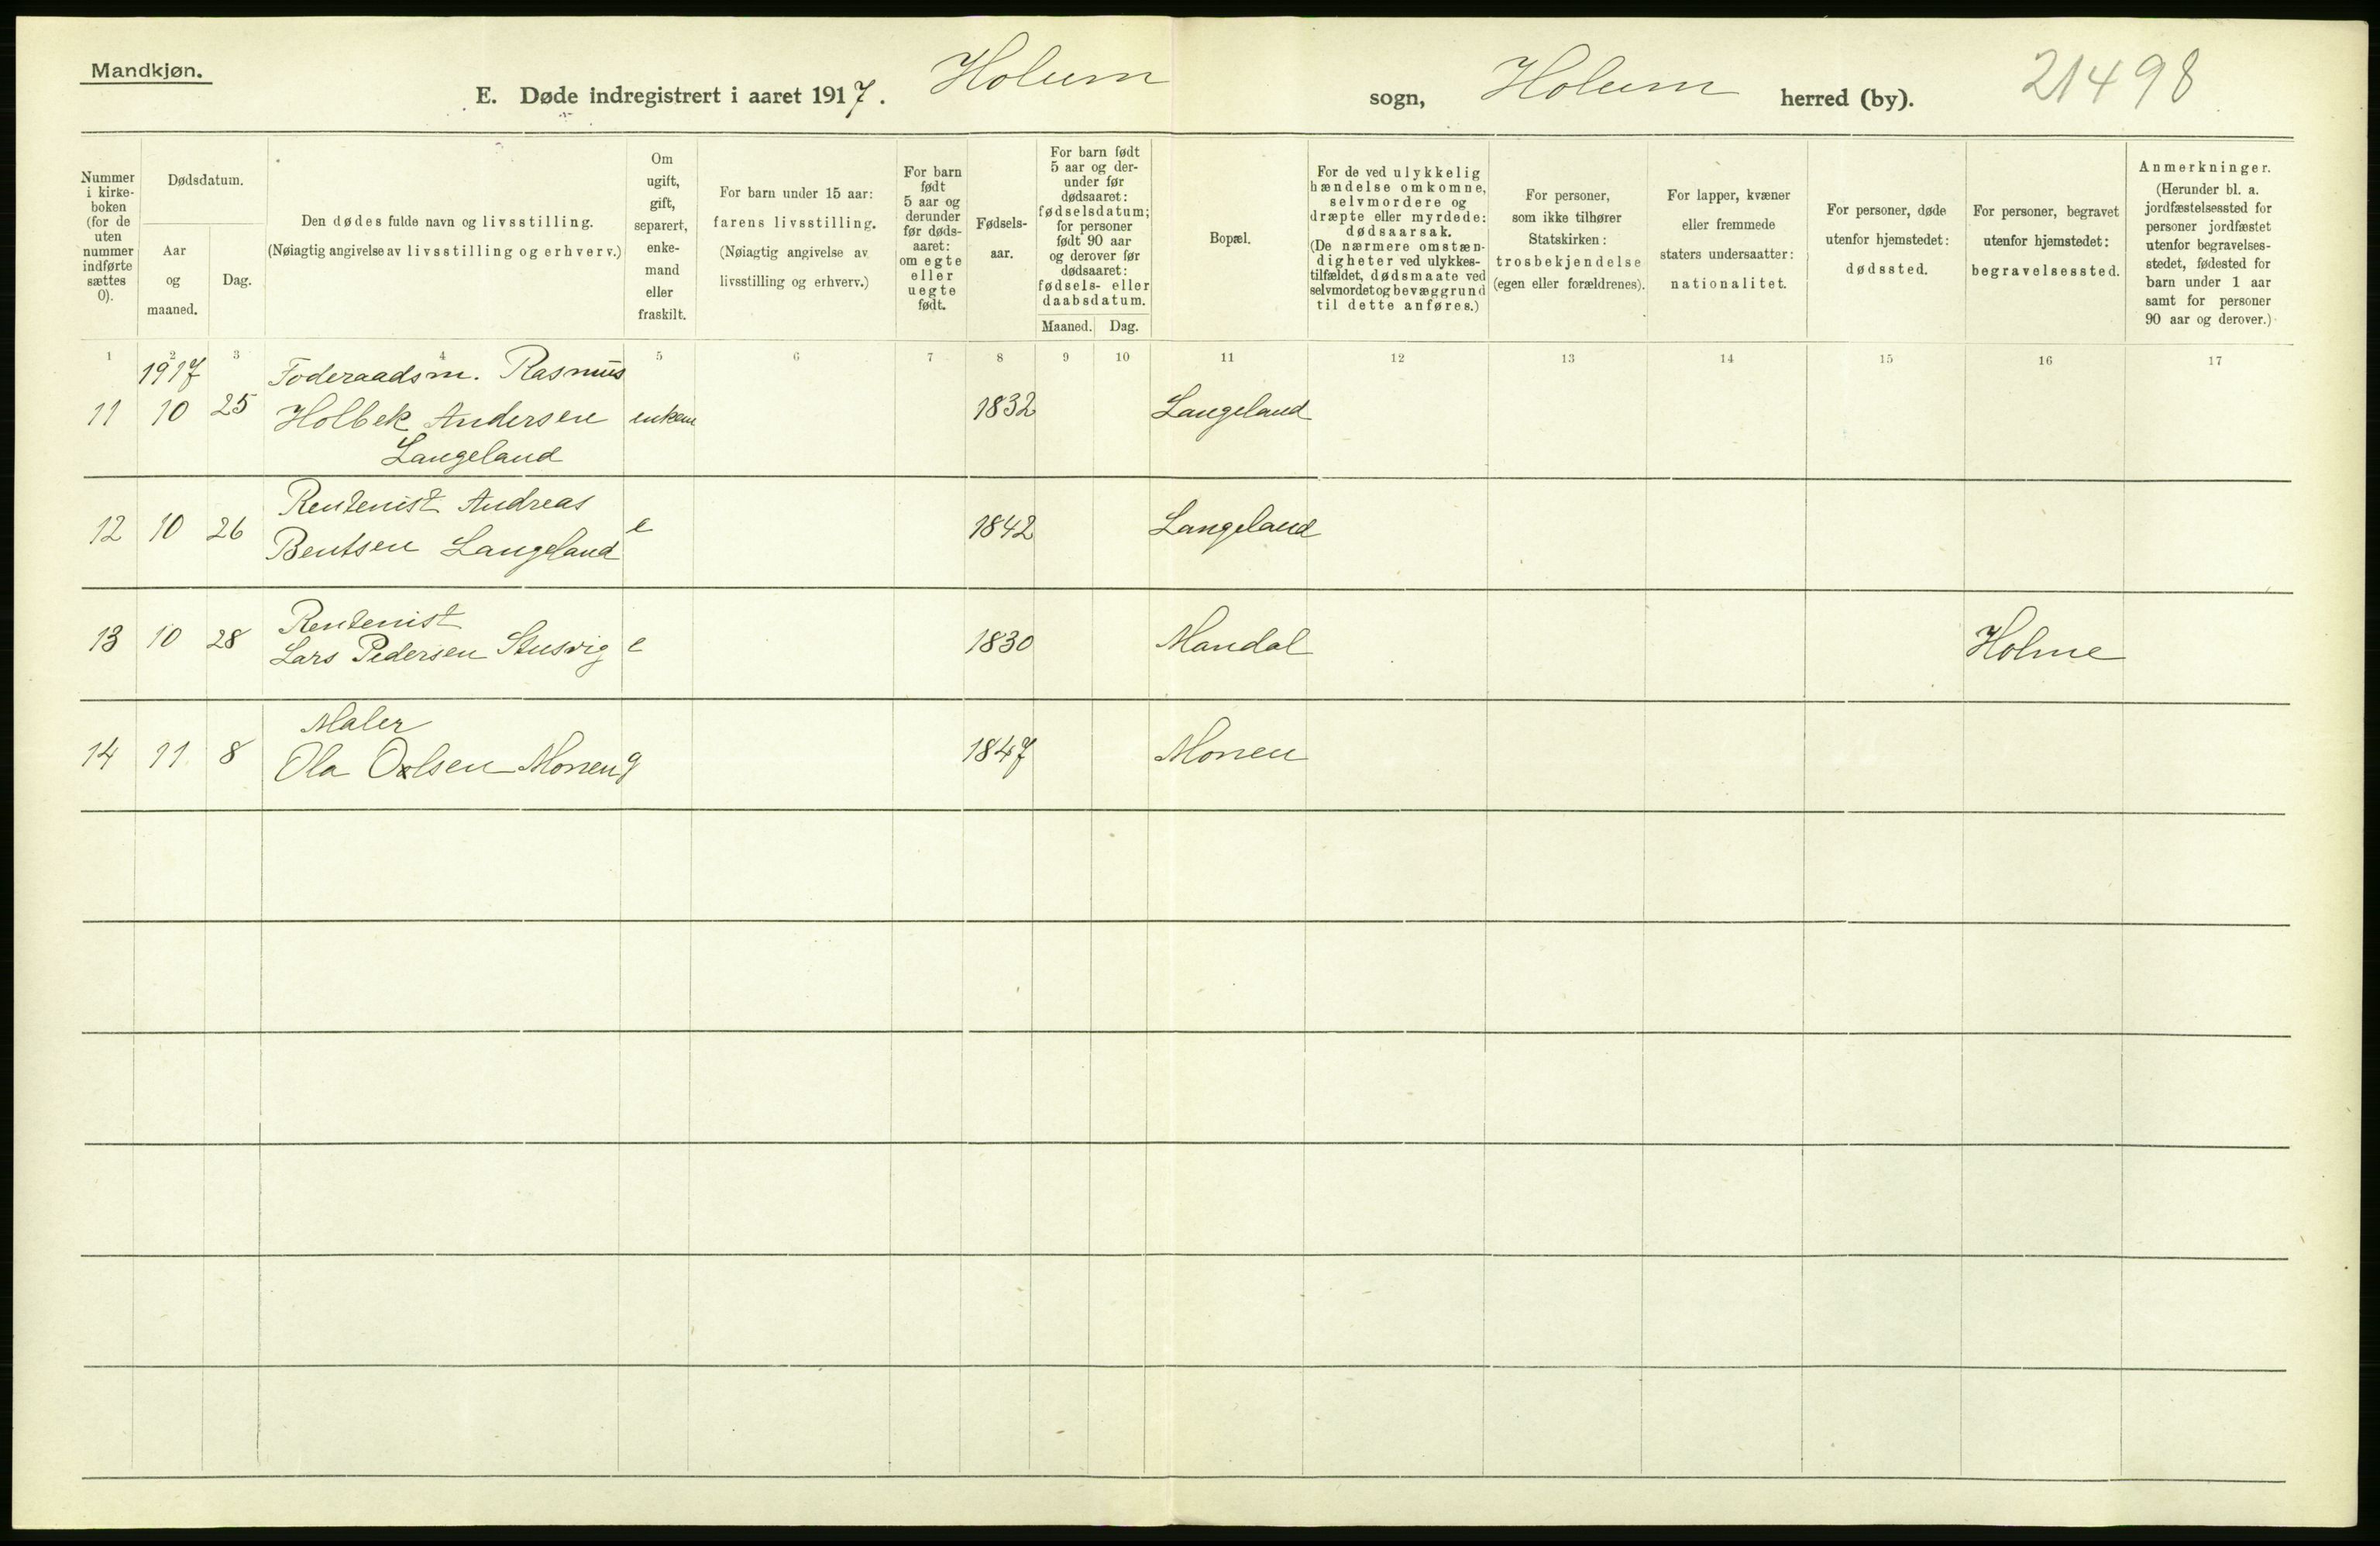 Mandkjøn.
E. Døde indregistrert i aaret 1917. Holum sogn, Holum herred (by). 21498
Nummer i kirke-boken (for de uten nummer indførte sættes 0).
Dødsdatum.
Aar og maaned.
Dag.
Den dødes fulde navn og livsstilling.
(Nøiagtig angivelse av livsstilling og erhverv.)
Om ugift, gift, separert, enke-mand eller fraskilt.
For barn under 15 aar:
farens livsstilling.
(Nøiagtig angivelse av livsstilling og erhverv.)
For barn født 5 aar og derunder før døds-aaret: om egte eller uegte født.
Fødsels-aar.
For barn født 5 aar og der-under før dødsaaret: fødselsdatum; for personer født 90 aar og derover før dødsaaret: fødsels- eller daabsdatum.
Maaned. Dag.
Bopæl.
For de ved ulykkelig hændelse omkomne, selvmordere og dræpte eller myrdede: dødsaarsak.
(De nærmere omstæn-digheter ved ulykkes-tilfældet, dødsmaate ved selvmordet og bevæggrund til dette anføres.)
For personer, som ikke tilhører Statskirken: trosbekjendelse (egen eller forældrenes).
For lapper, kvæner eller fremmede staters undersaatter: nationalitet.
For personer, døde utenfor hjemstedet: dødssted.
For personer, begravet utenfor hjemstedet: begravelsessted.
Anmerkninger.
(Herunder bl. a. jordfæstelsessted for personer jordfæstet utenfor begravelses-stedet, fødested for barn under 1 aar samt for personer 90 aar og derover.)
1 2 3 4 5 6 7 8 9 10 11 12 13 14 15 16 17
1917 Foderaadsm. Rasmus
11 10 25 Holbek Andersen enkem 1832 Langeland
Langeland
Rentenist Andreas
12 10 26 Bentsen Langeland e 1842 Langeland
Rentenist
13 10 28 Lars Pedersen Stusvig e 1830 Mandal Holme
Maler
14 11 8 Ola Olsen Monen g 1847 Monen